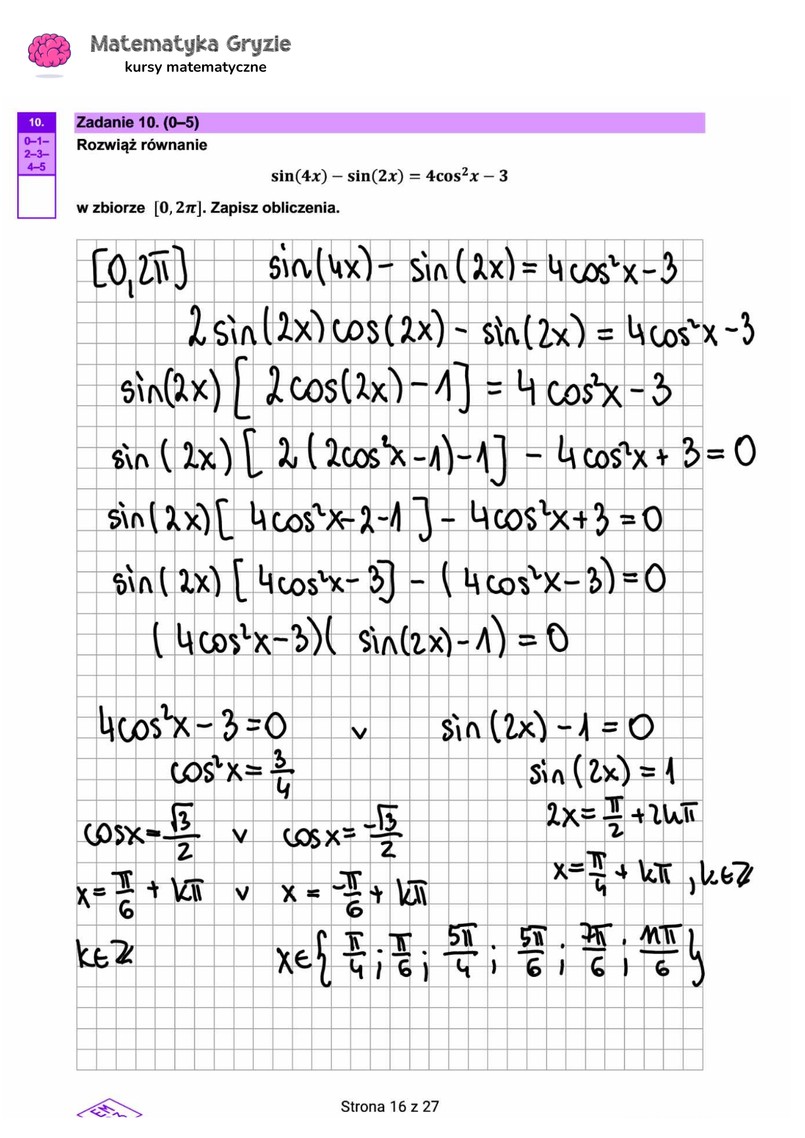 Matematyka Gryzie
kursy matematyczne
10.
0–1–
2–3–
4–5
Zadanie 10. (0–5)
Rozwiąż równanie
sin(4x) − sin(2x) = 4cos²x − 3
w zbiorze [0, 2π]. Zapisz obliczenia.
[0,2π] sin(4x) − sin(2x) = 4cos²x − 3
2 sin(2x) cos(2x) − sin(2x) = 4cos²x − 3
sin(2x) [ 2cos(2x) − 1 ] = 4cos²x − 3
sin(2x) [ 2(2cos²x − 1) − 1 ] − 4cos²x + 3 = 0
sin(2x) [ 4cos²x − 2 − 1 ] − 4cos²x + 3 = 0
sin(2x) [ 4cos²x − 3 ] − (4cos²x − 3) = 0
(4cos²x − 3)( sin(2x) − 1) = 0
4cos²x − 3 = 0 v sin(2x) − 1 = 0
cos²x = 3/4 sin(2x) = 1
cosx = √3/2 v cosx = −√3/2 2x = π/2 + 2kπ
x = π/6 + kπ v x = −π/6 + kπ x = π/4 + kπ , k∈ℤ
k∈ℤ x∈{ π/4 ; π/6 ; 5π/4 ; 5π/6 ; 7π/6 ; 11π/6 }
Strona 16 z 27